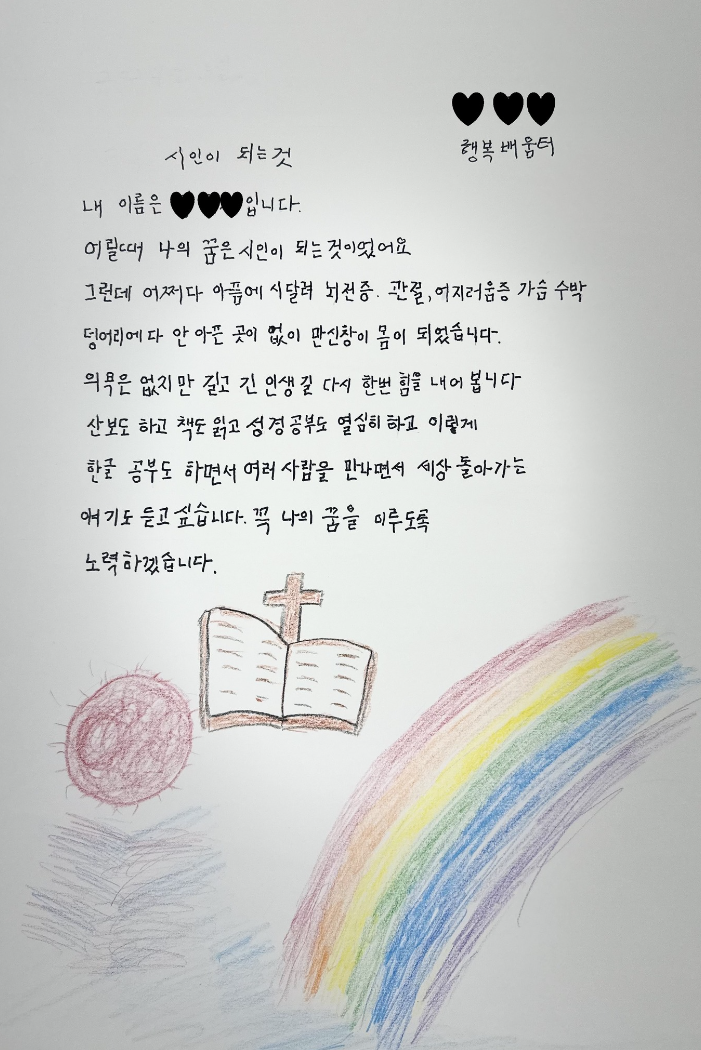 행복 배움터
시인이 되는 것
내 이름은 입니다.
어릴때 나의 꿈은 시인이 되는 것이었어요
그런데 어쩌다 아픔에 시달려 뇌전증. 관절, 어지러움증 가슴 수박
덩어리에 다 안 아픈 곳이 없이 만신창이 몸이 되었습니다.
의욕은 없지만 길고 긴 인생길 다시 한번 힘을 내어 봅니다
산보도 하고 책도 읽고 성경공부도 열심히 하고 이렇게
한글 공부도 하면서 여러 사람을 만나면서 세상 돌아가는
얘기도 듣고 싶습니다. 꼭 나의 꿈을 이루도록
노력하겠습니다.